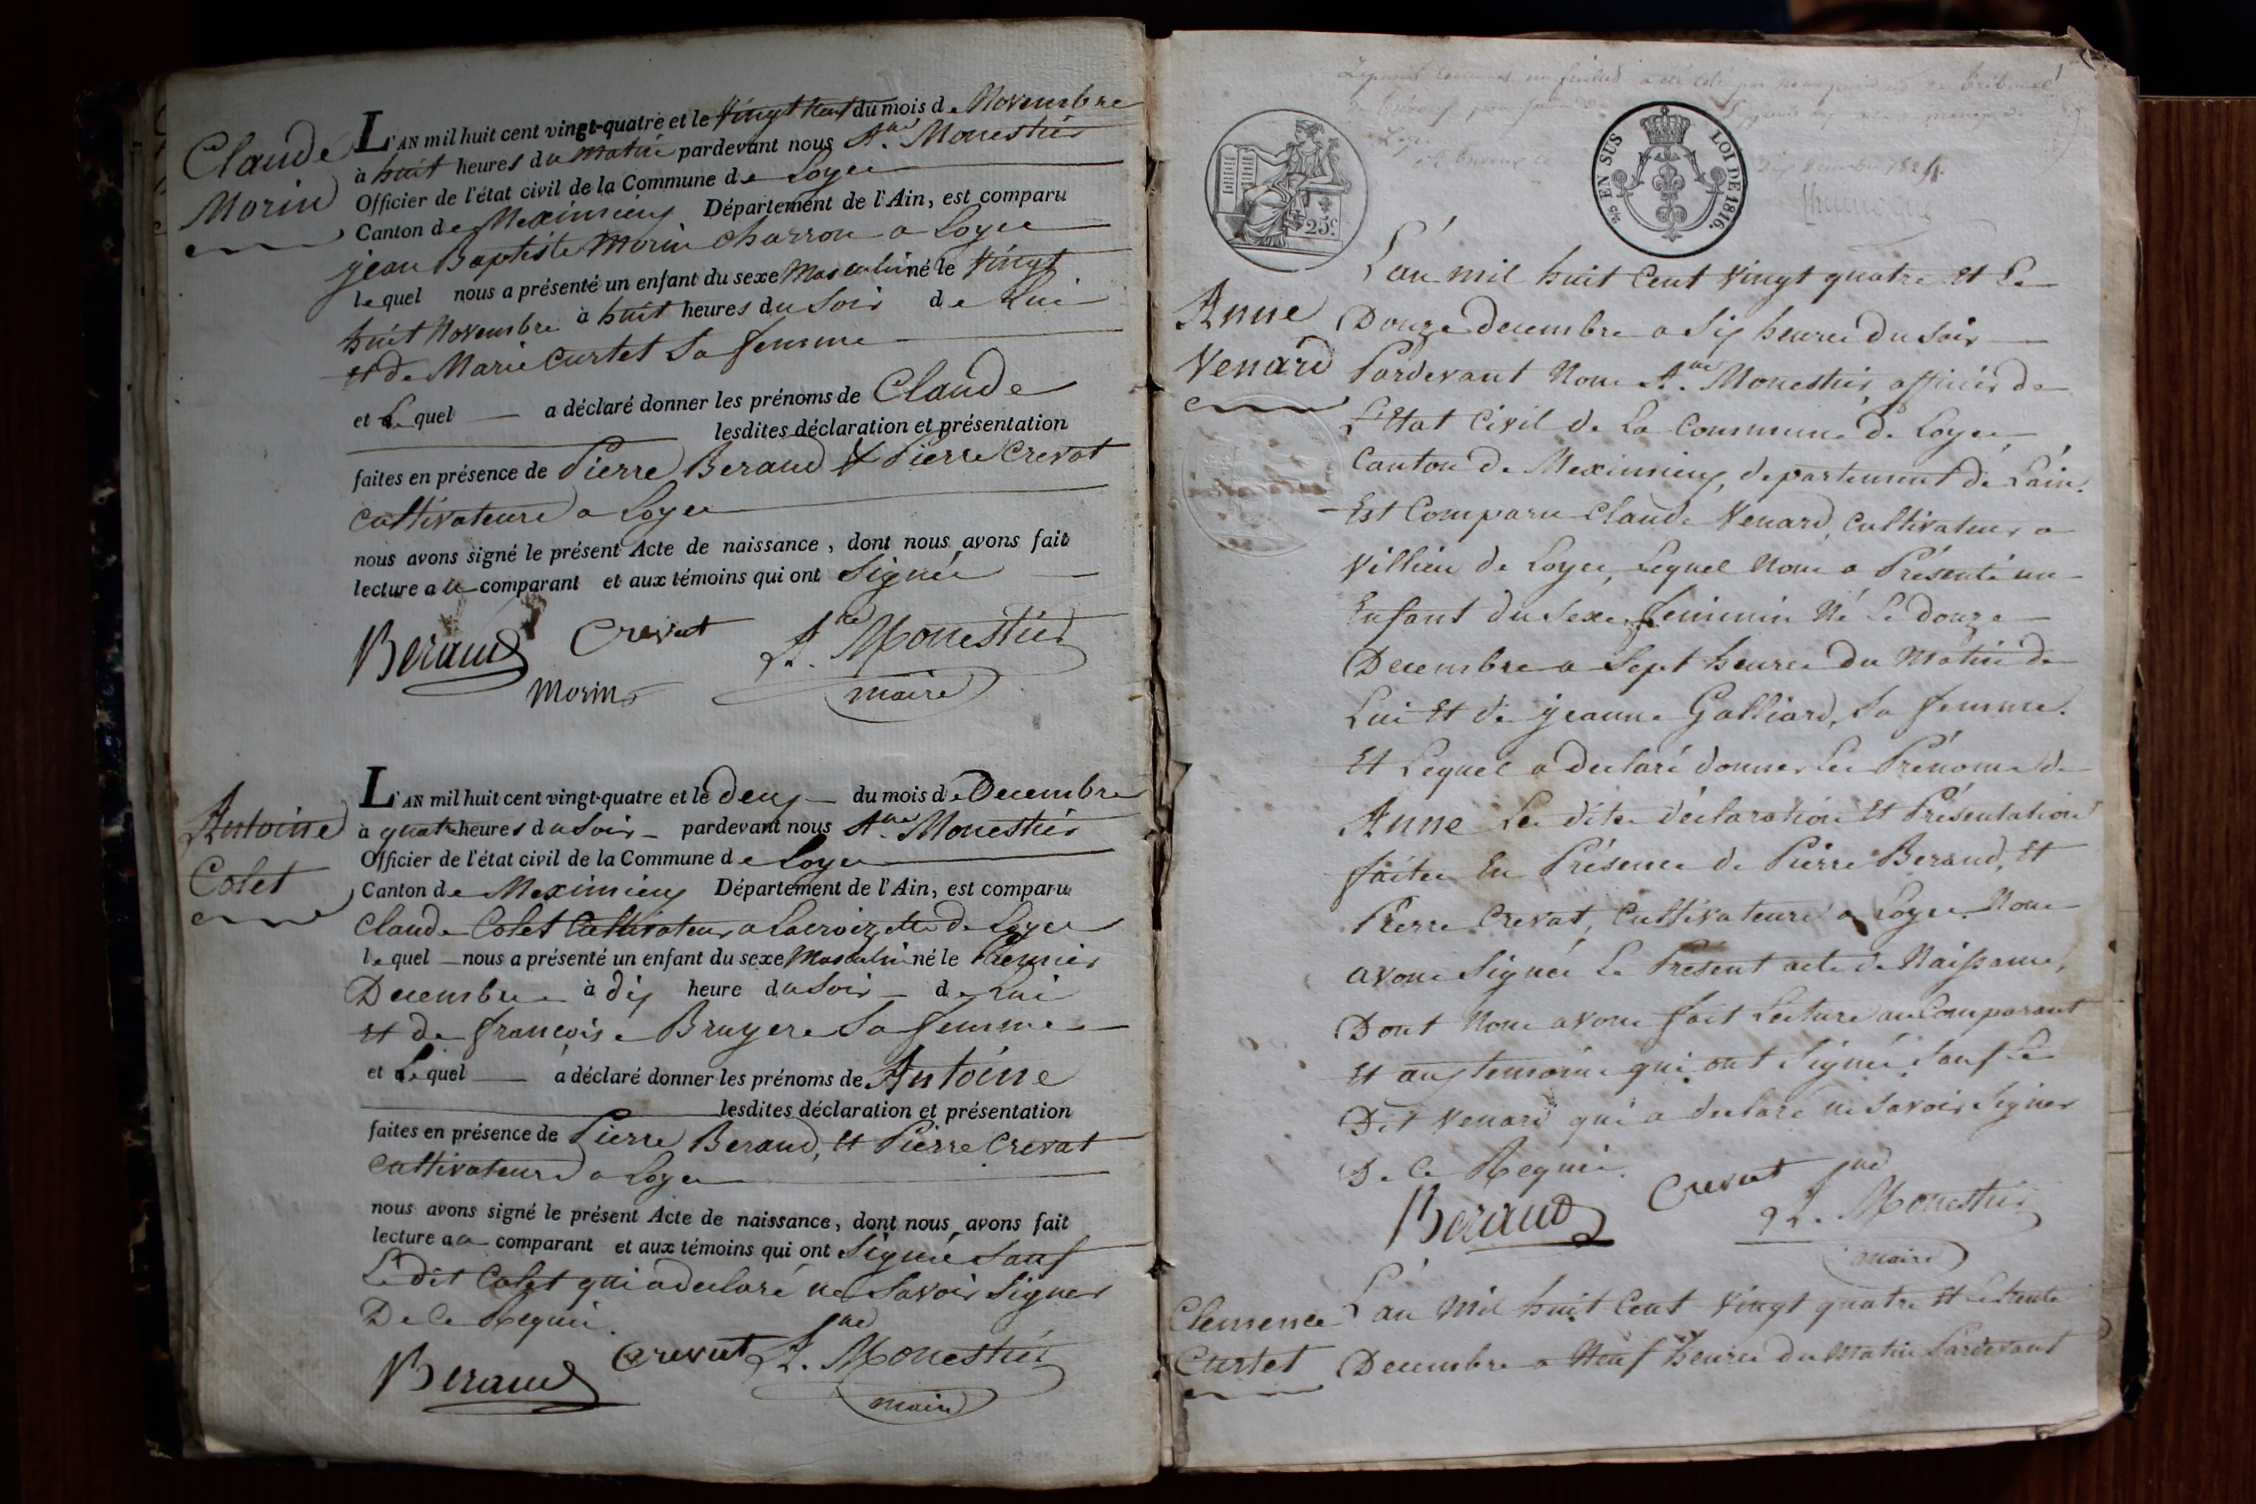 Claude
Morin
L'AN mil huit cent vingt-quatre et le Vingt Neuf du mois de Novembre
à huit heures du Matin pardevant nous A.ne Monestier
Officier de l'état civil de la Commune de Loyes
Canton de Meximieux Département de l'Ain, est comparu
jean Baptiste Morin charron a Loyes
lequel nous a présenté un enfant du sexe Masculin né le Vingt
huit Novembre à huit heures du Soir de Lui
et de Marie Curtet Sa femme
et Lequel a déclaré donner les prénoms de Claude
lesdites déclaration et présentation
faites en présence de Pierre Beraud & Pierre Crevat
Cultivateurs a Loyes
nous avons signé le présent Acte de naissance, dont nous avons fait
lecture au comparant et aux témoins qui ont Signés
Beraud Crevat A.ne Monestier
Morin maire
Antoine
Colet
L'AN mil huit cent vingt-quatre et le deux du mois de Decembre
à quatre heures du Soir pardevant nous A.ne Monestier
Officier de l'état civil de la Commune de Loyes
Canton de Meximieux Département de l'Ain, est comparu
Claude Colet Cultivateur a Lacroizette de Loyes
lequel nous a présenté un enfant du sexe Masculin né le Premier
Decembre à dix heure du Soir de Lui
et de françoise Bruyere Sa femme
et Lequel a déclaré donner les prénoms de Antoine
lesdites déclaration et présentation
faites en présence de Pierre Beraud, et Pierre Crevat
Cultivateurs a Loyes
nous avons signé le présent Acte de naissance, dont nous avons fait
lecture au comparant et aux témoins qui ont Signé Sauf
Le dit Colet qui a declaré ne Savoir Signer
De Ce Requis.
Beraud Crevat A.ne Monestier
maire
25c
2/5 EN SUS LOI DE 1816.
Anne
Venard
L'an mil huit Cent Vingt quatre et Le
Douze decembre a Six heures du Soir
Pardevant Nous A.ne Monestier, officier de
L'Etat Civil de La Commune de Loyes
Canton de Meximieux, departement de L'ain.
Est Comparu Claude Venard, Cultivateur a
Villieu de Loyes, Lequel Nous a Présenté un
Enfant du Sexe feminin Né Le douze
Decembre a Sept heures du Matin de
Lui Et de jeanne Galliard, Sa femme.
Et Lequel a declaré donner Les Prénoms de
Anne Les dites déclaration Et Présentation
faites En Présence de Pierre Beraud, Et
Pierre Crevat, Cultivateurs a Loyes. Nous
avons Signés Le Present acte de Naissance,
Dont Nous avons fait Lecture au Comparant
Et aux temoins qui ont Signés Sauf Le
Dit Venard qui a declaré ne Savoir Signer
De Ce Requis.
Beraud Crevat A.ne Monestier
maire
Clemence
Curtet
L'an Mil huit Cent Vingt quatre et Le trente
Decembre a Neuf heures du Matin Pardevant